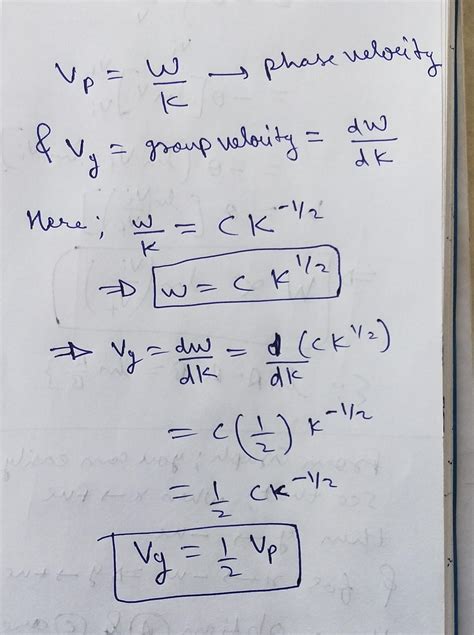 Vp = W/K → phase velocity
& Vg = group velocity = dW/dK
Here; W/K = C K^-1/2
⇒ W = C K^1/2
⇒ Vg = dW/dK = d/dK (CK^1/2)
= C(1/2) K^-1/2
= 1/2 CK^-1/2
Vg = 1/2 Vp